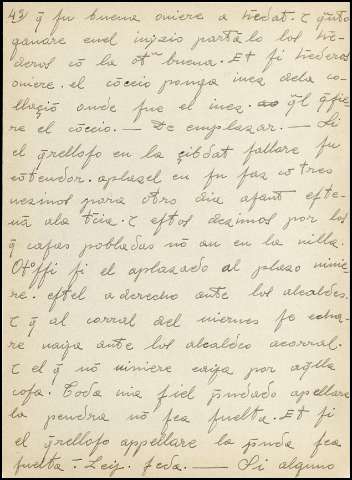 43) q̄ fu buena oniere a h̄edar. τ q̄nto
ganare enel inizio partālo los h̄e-
deros cō la otª buena. Et si h̄ederos
oniere. el cōceio ponga inez dela co-
llaçiō onde fue el inez. q̄l q̄sie-
re el cōceio. — De emplazar. — Si
el q̄relloso en la çibdat fallare su
cōtendor. aplazel en su faz cō tres
uezinos para otro dia ajant este-
nā ala t̄cia. τ estos dezimos por los
q̄ casas pobladas nō an en la uilla.
Otº ssi si el aplazado al plazo uinie-
re. estel a derecho ante los alcaldes.
τ q̄ al corral del uiernes se echa-
re uaya ante los alcaldes acorral.
τ el q̄ nō uiniere caya por aq̄lla
cosa. Toda uia fiel p̄ndado apellare
la pendra nō sea suelta. Et si
el q̄relloso appellare la p̄nda sea
suelta. Ley. feda. — Si alguno